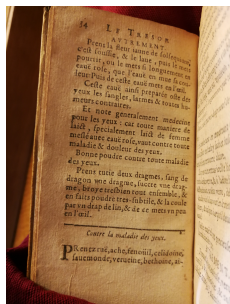 54 LE TRESOR
AUTREMENT.
Prens la fleur
c'est & le lane, puis le
pourrir, ou le mets si longuement en
eauë rose, que l'eauë en
leur. Puis de ceste eauë mets en l'œil.
Ceste eauë ainsi preparée oste des
yeux les sangles, larmes & toutes hu-
meurs contraires.
Et note generalement medecine
pour les yeux: car toute maniere de
laict, specialement laict de femme
meslée auec eauë rose, vaut contre toute
maladie & douleur des yeux.
Bonne poudre contre toute maladie
des yeux.
Prens tutie deux dragmes, sang de
dragon vne dragme, succre vne drag-
me, broye tres bien tout ensemble, &
en faits poudre tres-subtile, & la coule
par vn drap de lin, & de ce mets vn peu
en l'œil.
Contre la maladie des yeux.
PRenez ruë, ache, fenoüil, celidoine,
verueine, bethoine,